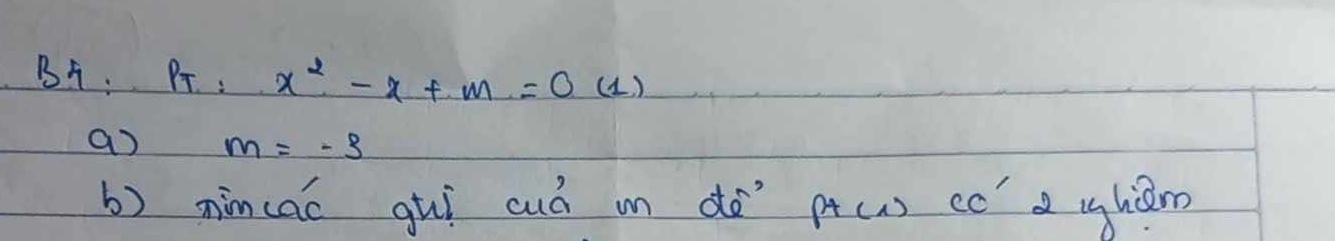 B4: PT: x² - x + m = 0 (1)
a) m = -3
b) Tìm các gtrị của m để pt (1) có 2 nghiệm